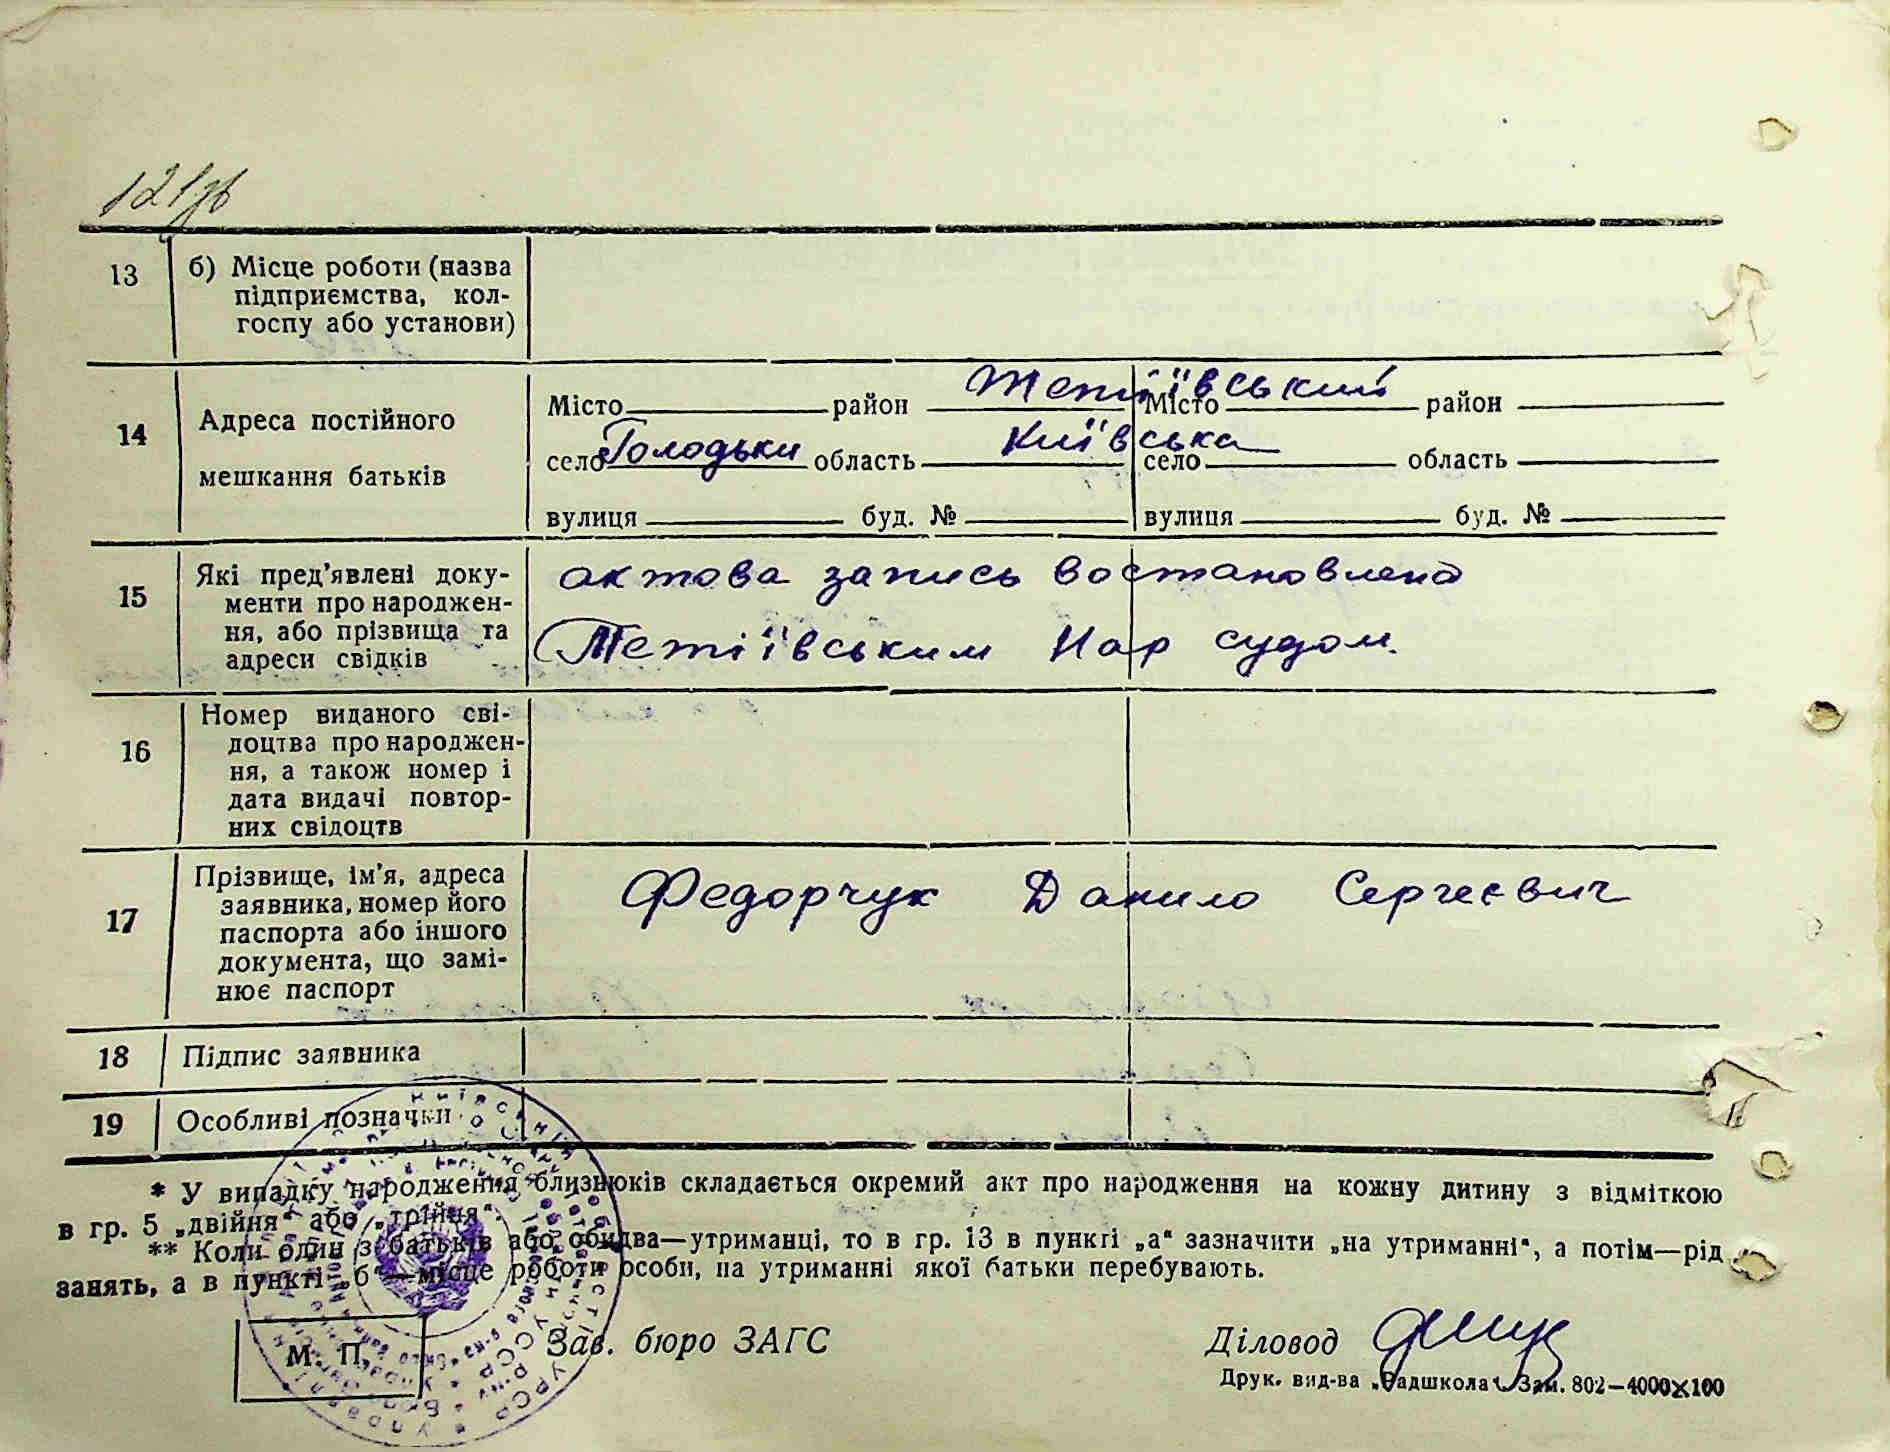 121зв
13 б) Місце роботи (назва
підприємства, кол-
госпу або установи)
14 Адреса постійного
мешкання батьків
Місто район Тетіївський Місто район
село Голодьки область Київська село область
вулиця буд. № вулиця буд. №
15 Які пред'явлені доку-
менти про народжен-
ня, або прізвища та
адреси свідків
актова запись востановлена
Тетіївським Нар судом.
16 Номер виданого сві-
доцтва про народжен-
ня, а також номер і
дата видачі повтор-
них свідоцтв
17 Прізвище, ім'я, адреса
заявника, номер його
паспорта або іншого
документа, що замі-
нює паспорт
Федорчук Данило Сергеєвич
18 Підпис заявника
19 Особливі позначки
* У випадку народження близнюків складається окремий акт про народження на кожну дитину з відміткою
в гр. 5 „двійня“ або „трійня“.
** Коли один з батьків або обидва—утриманці, то в гр. 13 в пункті „а“ зазначити „на утриманні“, а потім—рід
занять, а в пункті „б“—місце роботи особи, на утриманні якої батьки перебувають.
М. П.
Зав. бюро ЗАГС
Діловод
Друк. вид-ва „Радшкола“. Зам. 802—4000×100